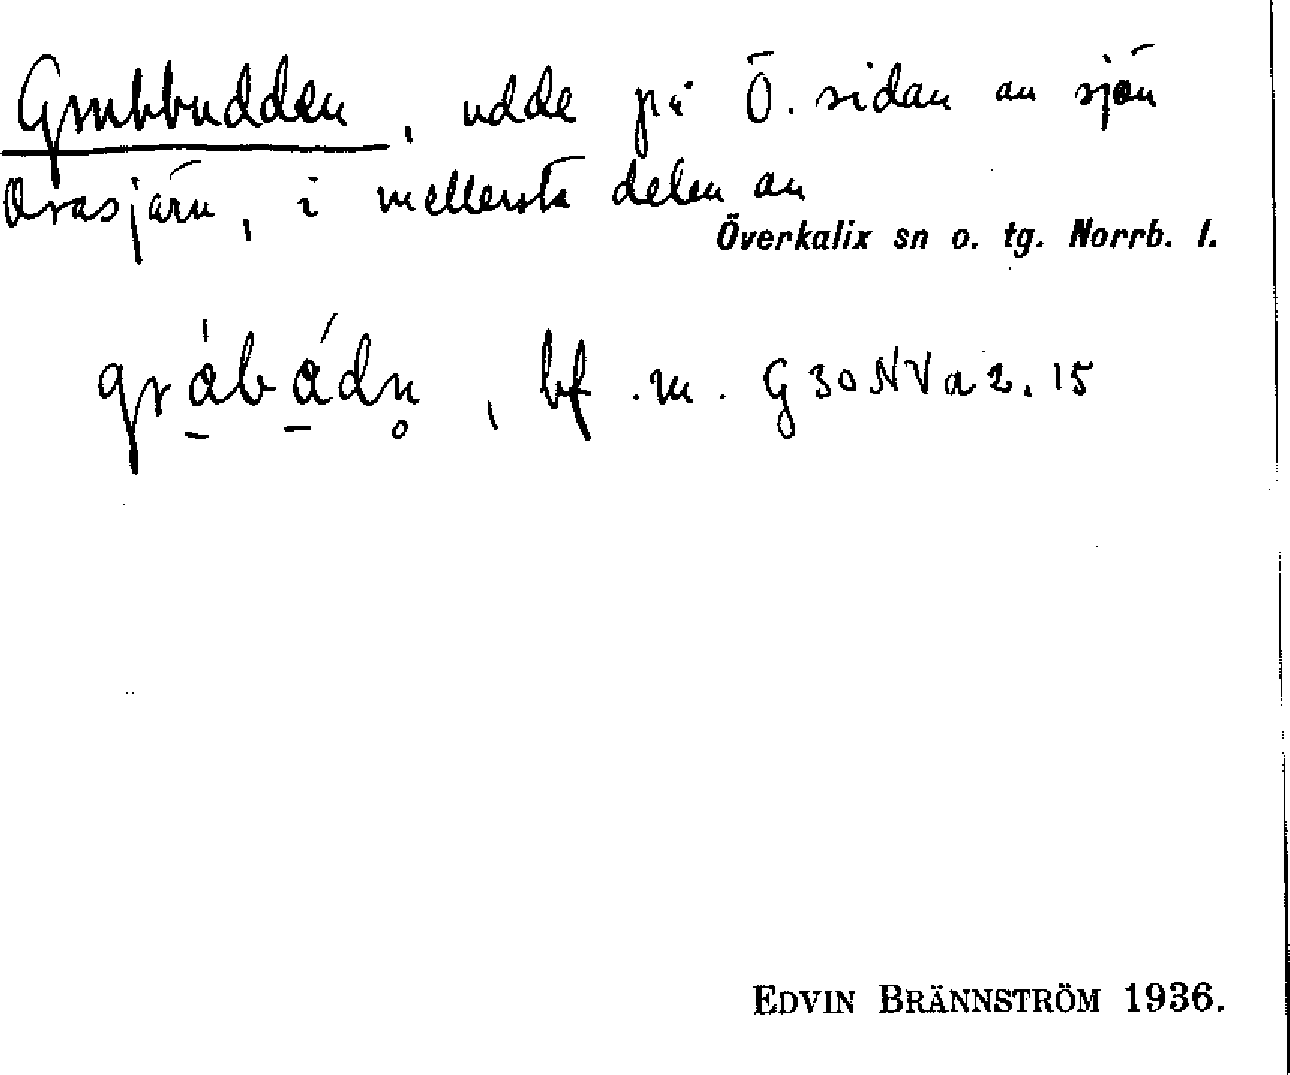 Grubbudden, udde på Ö. sidan av sjön
Orrasjärv, i mellersta delen av
Överkalix sn o. tg. Norrb. l.
gråbådn̥, bf. m. G30NVa2.15
EDVIN BRÄNNSTRÖM 1936.